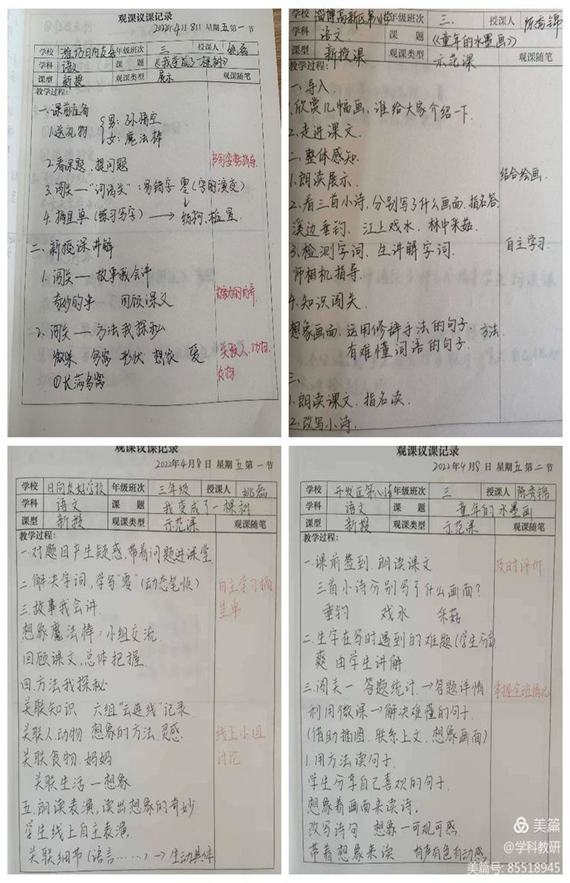 观课议课记录
2022年4月8日 星期五第一节
学校 年级班次 三 授课人
学科 语文 课 题 《我变成了一棵树》
课型 新授 观课类型 展示 观课随笔
教学过程:
一.课前准备
1.送礼物 {男:孙悟空
女:魔法棒
2.看课题,提问题
3.闯关一"词语关":易错字 零(字的演变)
4.摘星单(练习写字)
二.新授课讲解
1.闯关一 故事我会讲
奇妙的事 回顾课文
2.闯关一 方法我探秘
形状 想象
①长满鸟窝
授课人
学科 语文 课 题 《童年的水墨画》
课型 新授课 观课类型 示范课 观课随笔
教学过程:
一.导入
1.欣赏几幅画,谁给大家介绍一下.
2.走进课文.
二.整体感知.
1.朗读展示.
结合绘画.
2.看三首小诗,分别写了什么画面.指名答
溪边垂钓. 江上戏水. 林中采菇.
3.检测字词.生讲解字词.
自主学习.
师相机指导.
4.知识闯关
想象画面.运用修辞手法的句子. 方法.
有难懂词语的句子.
三.
1.朗读课文.指名读.
2.改写小诗.
观课议课记录
2022年4月8日 星期五第一节
学校 日向友好学校 年级班次 三年级 授课人
学科 语文 课 题 我变成了一棵树
课型 新授 观课类型 示范课 观课随笔
教学过程:
一.对题目产生疑惑,带着问题进课堂
二.解决字词,学写"零"(动态笔顺)
三.故事我会讲.
想象魔法棒,小组交流.
回顾课文,总体把握.
四.方法我探秘.
关联知识 六组"云连线"记录
关联人.动物 想象的方法.灵感.
线上小组
讨论
关联食物.妈妈
关联生活一想象
五.朗读表演,读出想象的奇妙
学生线上自主表演.
关联细节(语言……)→生动具体
观课议课记录
2022年4月8日 星期五第二节
学校 年级班次 三 授课人
学科 语文 课 题 童年的水墨画
课型 新授 观课类型 示范课 观课随笔
教学过程:
一.课前签到.朗读课文
及时评价
三首小诗分别写了什么画面?
垂钓 戏水 采菇
二.生字在写时遇到的难题(学生回答)
由学生讲解
三.闯关一 答题统计→答题详情
掌握全班情况
利用微课→解决难懂的句子.
(借助插图.联系上文.想象画面)
1.用方法读句子.
学生分享自己喜欢的句子.
想象着画面来读诗.
改写诗句 想象一可观可感
带着想象来读 有声有色有动感
美篇
@学科教研
美篇号:85518945